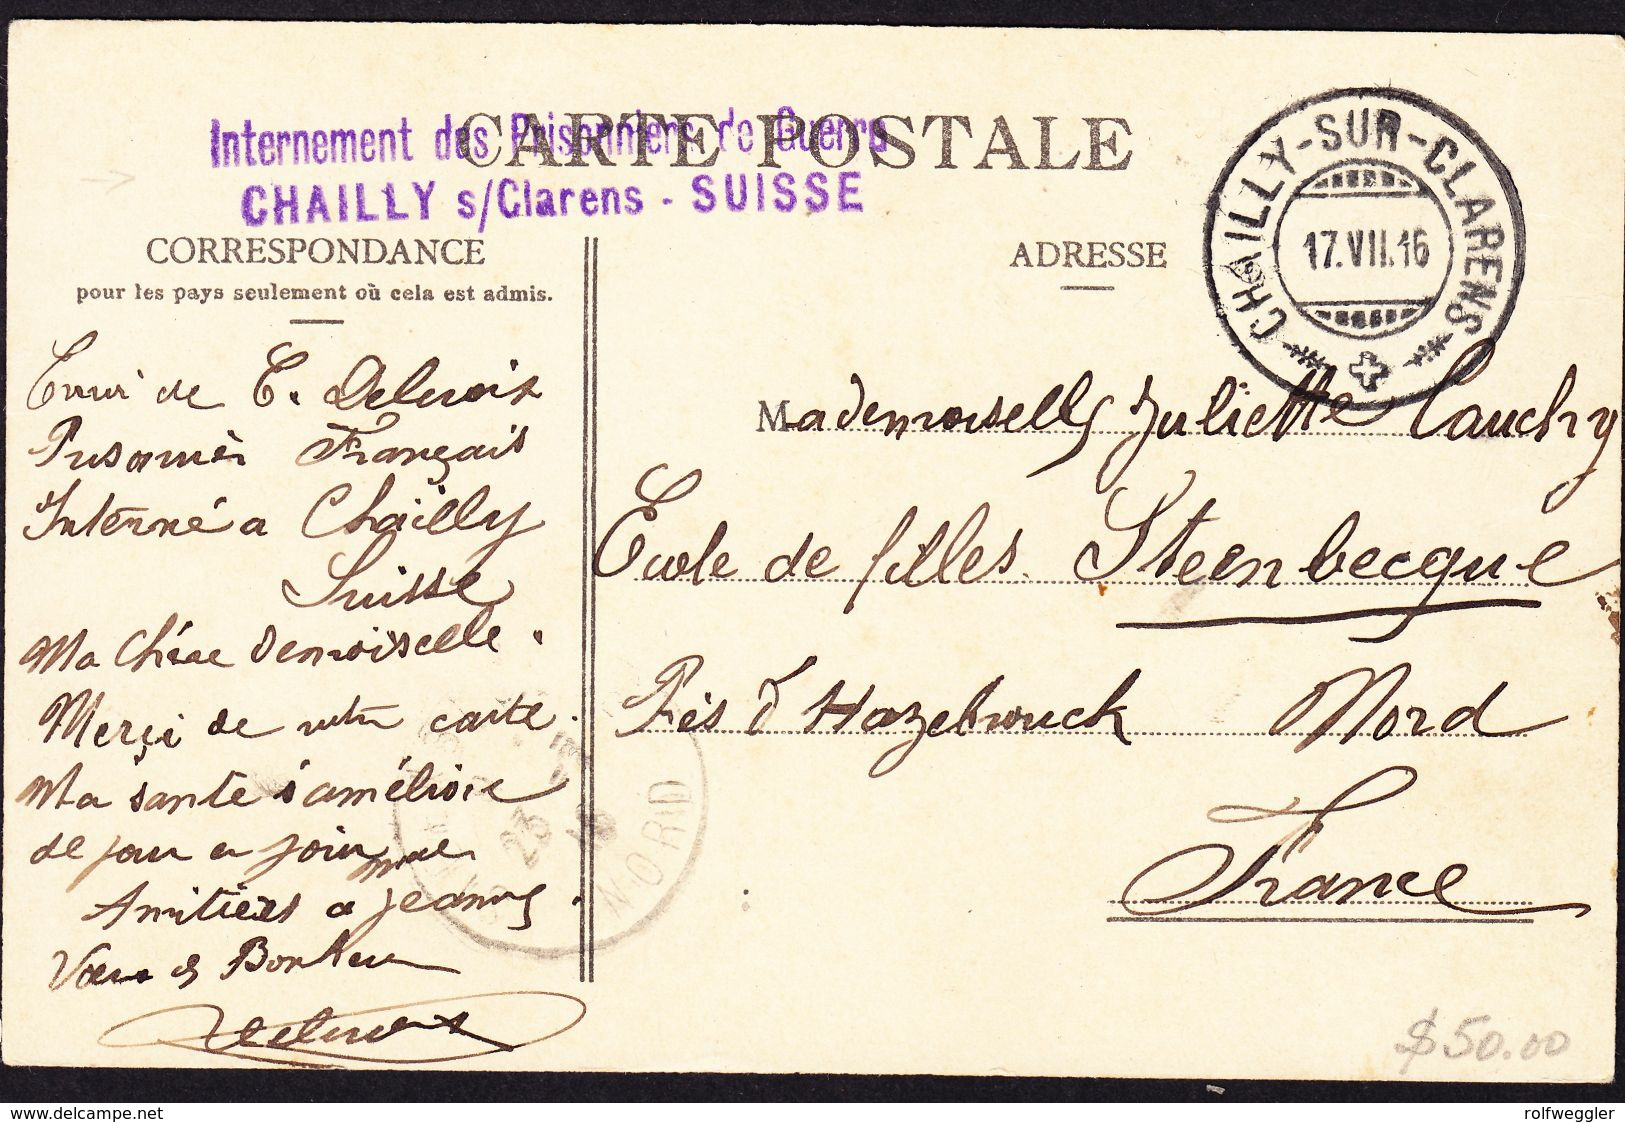 CARTE POSTALE
Internement des Prisonniers de Guerre
CHAILLY s/Clarens - SUISSE
CHAILLY-SUR-CLARENS
17.VII.16
CORRESPONDANCE
pour les pays seulement où cela est admis.
ADRESSE
Envoi de E. Delecroix
Prisonnier Français
Interné a Chaïlly
Suisse
Ma Chère demoiselle.
Merçi de votre carte.
Ma santé s'améliore
de jour en jour
Amitiés a Jeanne.
Vœux de Bonheur
Mademoiselle Juliette Cauchy
École de filles Steenbecque
Près d'Hazebrouck Nord
France
23
NORD
$50.00
rolfweggler